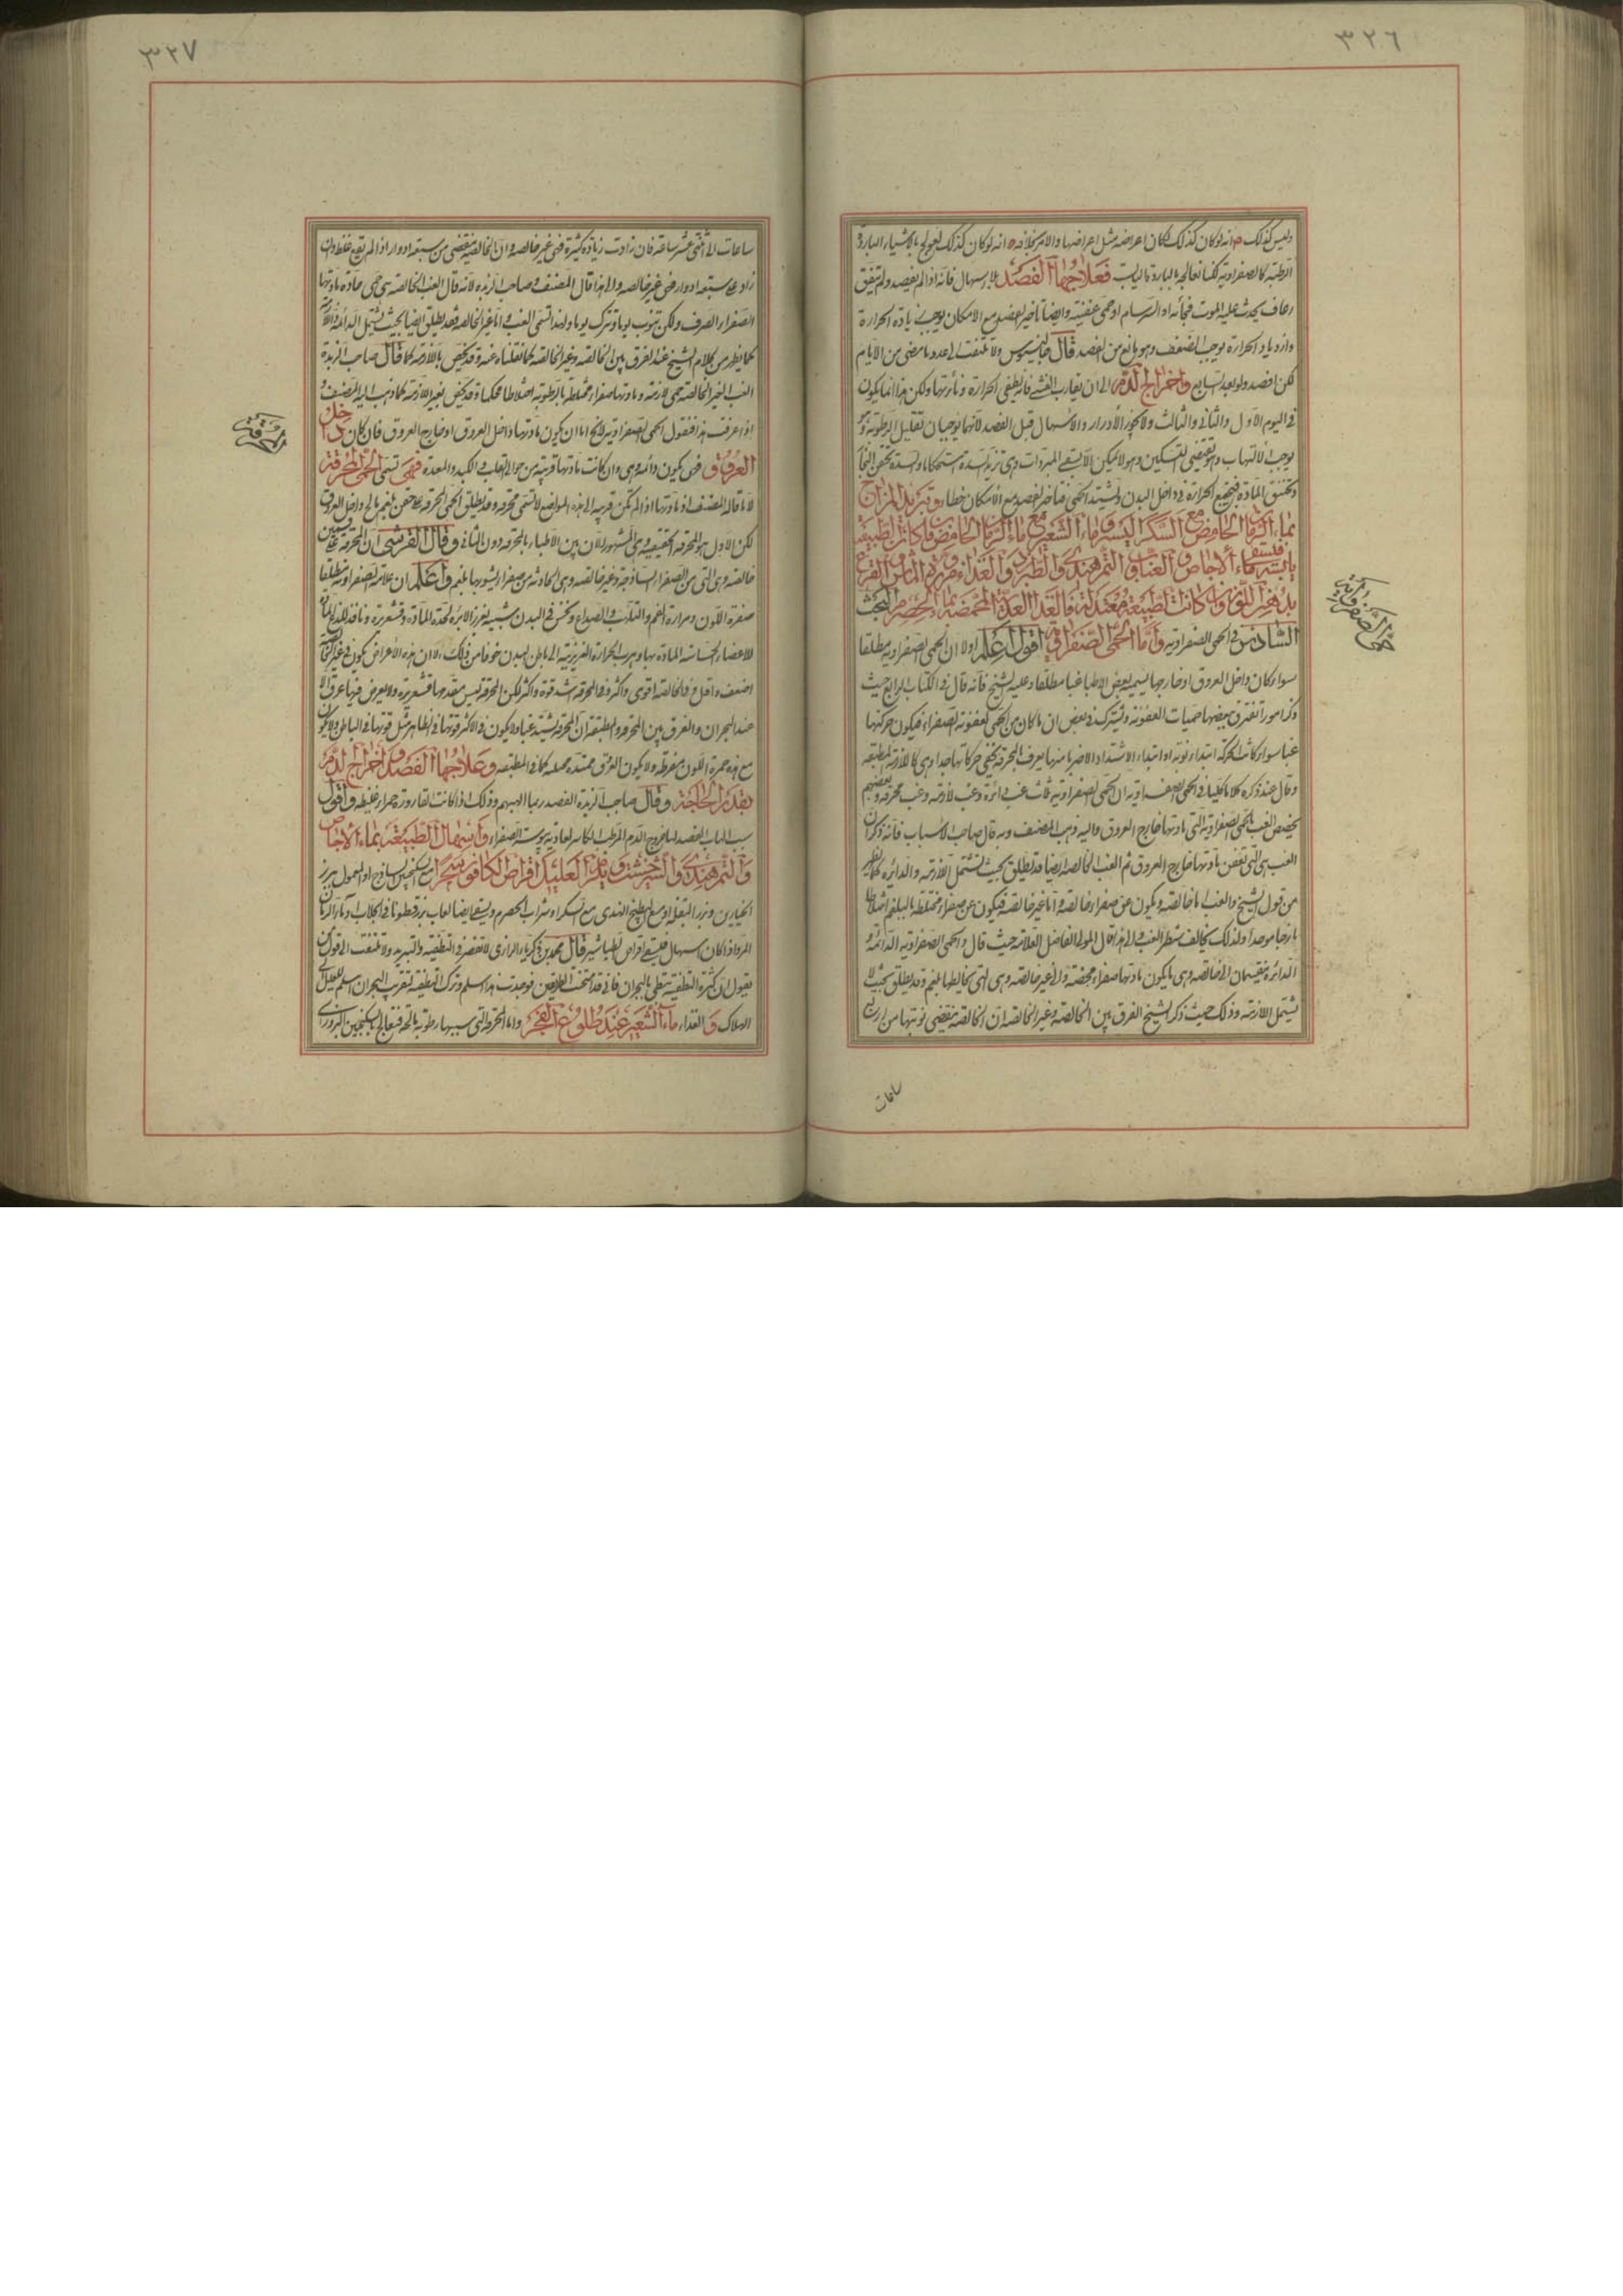 ٣٢٦
وليس كذلك م انه لو كان كذلك لكان اعراضه مثل اعراضها والامر بخلافه ه انه لو كان كذلك لعولج بالاشياء الباردة
الرطبة كالصفراوية لكنا نعالجه بالباردة اليابسة فعلاجها الفصد بلا اسهال فانه اذا لم يفصد ولم يتفق
رعاف يحدث عليه الموت فجأة او السرسام او حمى عفنية وايضا تأخير الفصد مع الامكان يوجب زيادة الحرارة
وازدياد الحرارة يوجب الضعف وهو مانع من الفصد قال جالينوس ولا تلتفت الى عدد ما مضى من الايام
لكن افصد ولو بعد السابع واخراج الدم الى ان يقارب الغشي فانه يطفي الحرارة ونائرتها ولكن هذا انما يكون
في اليوم الاول والثاني والثالث ولا يجوز الادرار والاسهال قبل الفصد لانهما يوجبان تقليل الرطوبة وهو
يوجب الالتهاب وهو يقتضي التسكين وهو لا يمكن الا بسقي المبردات وهي تزيد السدة استحكاما والسدة تحقن البخار
وتختنق المادة فتجتمع الحرارة في داخل البدن وتشتد الحمى فتأخير الفصد مع الامكان خطاء وتبريد المزاج
بماء الرمان الحامض مع السكر اليسير وماء الشعير مع ماء الرمان الحامض فان كانت الطبيعة
يابسة فيسقى ماء الاجاص والعناب والتمر هندي والطبرزد والغذاء مزورة الماش والقرع
بدهن اللوز وان كانت الطبيعة معتدلة فالغذاء العدس المحمضة بماء الحصرم البحث
السادس في الحمى الصفراوية واما الحمى الصفراوية اقول اعلم اولا ان الحمى الصفراوية مطلقا
سواء كان داخل العروق او خارجها يسميه بعض الاطباء غبا مطلقا وعليه الشيخ فانه قال في الكتاب الرابع حيث
ذكر امورا تفترق ببعضها حميات العفونة وتشترك في بعض ان ما كان من الحمى لعفونة الصفراء فيكون حركتها
غبا سواء كانت الحركة ابتداء نوبة او ابتداء الاشتداد الا ضربا منها يعرف بالمحرقة يخفى حركاتها جدا وهي كاللازمة المطبقة
وقال عند ذكره كلاما كليا في الحمى الصفراوية ان الحمى الصفراوية ثلث غب دائرة وغب لازمة وغب محرقة وبعضهم
يخصص الغب بالحمى الصفراوية التي مادتها خارج العروق واليه ذهب المصنف وبه قال صاحب الاسباب فانه ذكر ان
الغب هي التي تعفن مادتها خارج العروق ثم الغب الخالصة ايضا قد يطلق بحيث تشتمل اللازمة والدائرة كما يظهر
من قول الشيخ والغب اما خالصة ويكون عن صفراء خالصة واما غير خالصة فيكون عن صفراء مختلطة بالبلغم اختلاطا
مازجا موحدا ولذلك يخالف شطر الغب والى هذا قال المولى الفاضل العلامة حيث قال والحمى الصفراوية الدائمة و
الدائرة ينقسمان الى خالصة وهي ما يكون مادتها صفراء محضة والى غير خالصة وهي التي يخالطها بلغم وقد يطلق بحيث لا
يشتمل اللازمة وذلك حيث ذكر الشيخ الفرق بين الخالصة وغير الخالصة ان الخالصة تنقضي نوبتها من اربع
ساعات
حمى الصفراوية
٣٢٧
ساعات الى اثنتي عشر ساعة فان زادت زيادة كثيرة فهي غير خالصة وان الخالصة تنقضي من سبعة ادوار اذا لم يقع غلط وان
زاد على سبعة ادوار فهي غير خالصة والى هذا قال المصنف وصاحب الزبدة لانه قال الغب الخالصة هي حمى حادة مادتها
الصفراء الصرف ولكن تنوب يوما وتترك يوما ولهذا تسمى الغب واما غير الخالصة فقد يطلق ايضا بحيث تشتمل الدائمة واللازمة
كما يظهر من كلام الشيخ عند الفرق بين الخالصة وغير الخالصة كما نقلناه عنه وقد يخص باللازمة كما قال صاحب الزبدة
الغب الغير الخالصة حمى لازمة ومادتها صفراء مختلطة بالرطوبة اختلاطا محكما وقد يخص بغير اللازمة كما ذهب اليه المصنف و
اذا عرفت هذا فنقول الحمى الصفراوية لا يخ اما ان يكون مادتها داخل العروق او خارج العروق فان كان داخل
العروق فهي يكون دائمة وهي وان كانت مادتها قريبة من حوالي القلب او الكبد والمعدة فهي تسمى الحمى المحرقة
لا ما قاله المصنف اذ مادتها اذا لم تكن قريبة الى هذه المواضع لا تسمى محرقة وقد يطلق الحمى المحرقة على عفن بلغم مالح داخل العروق
لكن الاول هو المحرقة الحقيقية وهي المشهور الآن بين الاطباء بالمحرقة دون الثاني وقال القرشي ان المحرقة على قسمين
خالصة وهي التي من الصفراء الساذجة وغير خالصة وهي الحادثة من صفراء يشوبها بلغم واعلم ان علامة الصفراوية مطلقا
صفرة اللون ومرارة الفم والتلهب والصداع ونخس في البدن شبيه بغرز الابرة لحدة المادة وقشعريرة ونافذ للذع المادة
للاعضاء الحساسة المادة بها وهرب الحرارة الغريزية الى باطن البدن خوفا من ذلك الا ان هذه الاعراض يكون في غير الخالصة
اضعف واقل وفي الخالصة اقوى واكثر وفي المحرقة اشد قوة واكثر لكن المحرقة ليس مقدمها قشعريرة ولا يعرض فيها عرق الا
عند البحران والفرق بين المحرقة والمطبقة ان المحرقة يشتد غبا ولا يكون في الاكثر قوتها في الظاهر مثل قوتها في الباطن ولا يكون
مع هذه حمرة اللون مفرطة ولا يكون العرق ممتدة ممتلية كما في المطبقة وعلاجها الفصد واخراج الدم
بقدر الحاجة وقال صاحب الزبدة الفصد ربما الهبهم وذلك اذا كانت القارورة حمراء غليظة واقول
سبب الهاب الفصد لها خروج الدم المرطب الكاسر لعادية يبوسة الصفراء واسهال الطبيعة بماء الاجاص
والتمر هندي والشيرخشت ويلزم العليل اقراص الكافور سحرا مع السكنجبين الساذج او المعمول ببزر
الخيارين وبزر البقلة او مع البطيخ الهندي مع السكر او شراب الحصرم ويسقى ايضا لعاب بزر قطونا في الجلاب وماء الرمان
المز واذا كان اسهال فليسقى اقراص الطباشير قال محمد بن زكرياء الرازي لا تقصر في التطفية والتبريد ولا تلتفت الى قول من
يقول ان كثرة التطفية تبطئ بالبحران فاني قد امتحنت الطريقين فوجدت هذا اسلم وترك التطفية لتقرب البحران اسلم للعليل الى
الهلاك والغذاء ماء الشعير عند طلوع الفجر واما المحرقة التي سببها رطوبة مالحة فتعالج بالسكنجبين البزوري
المحرقة